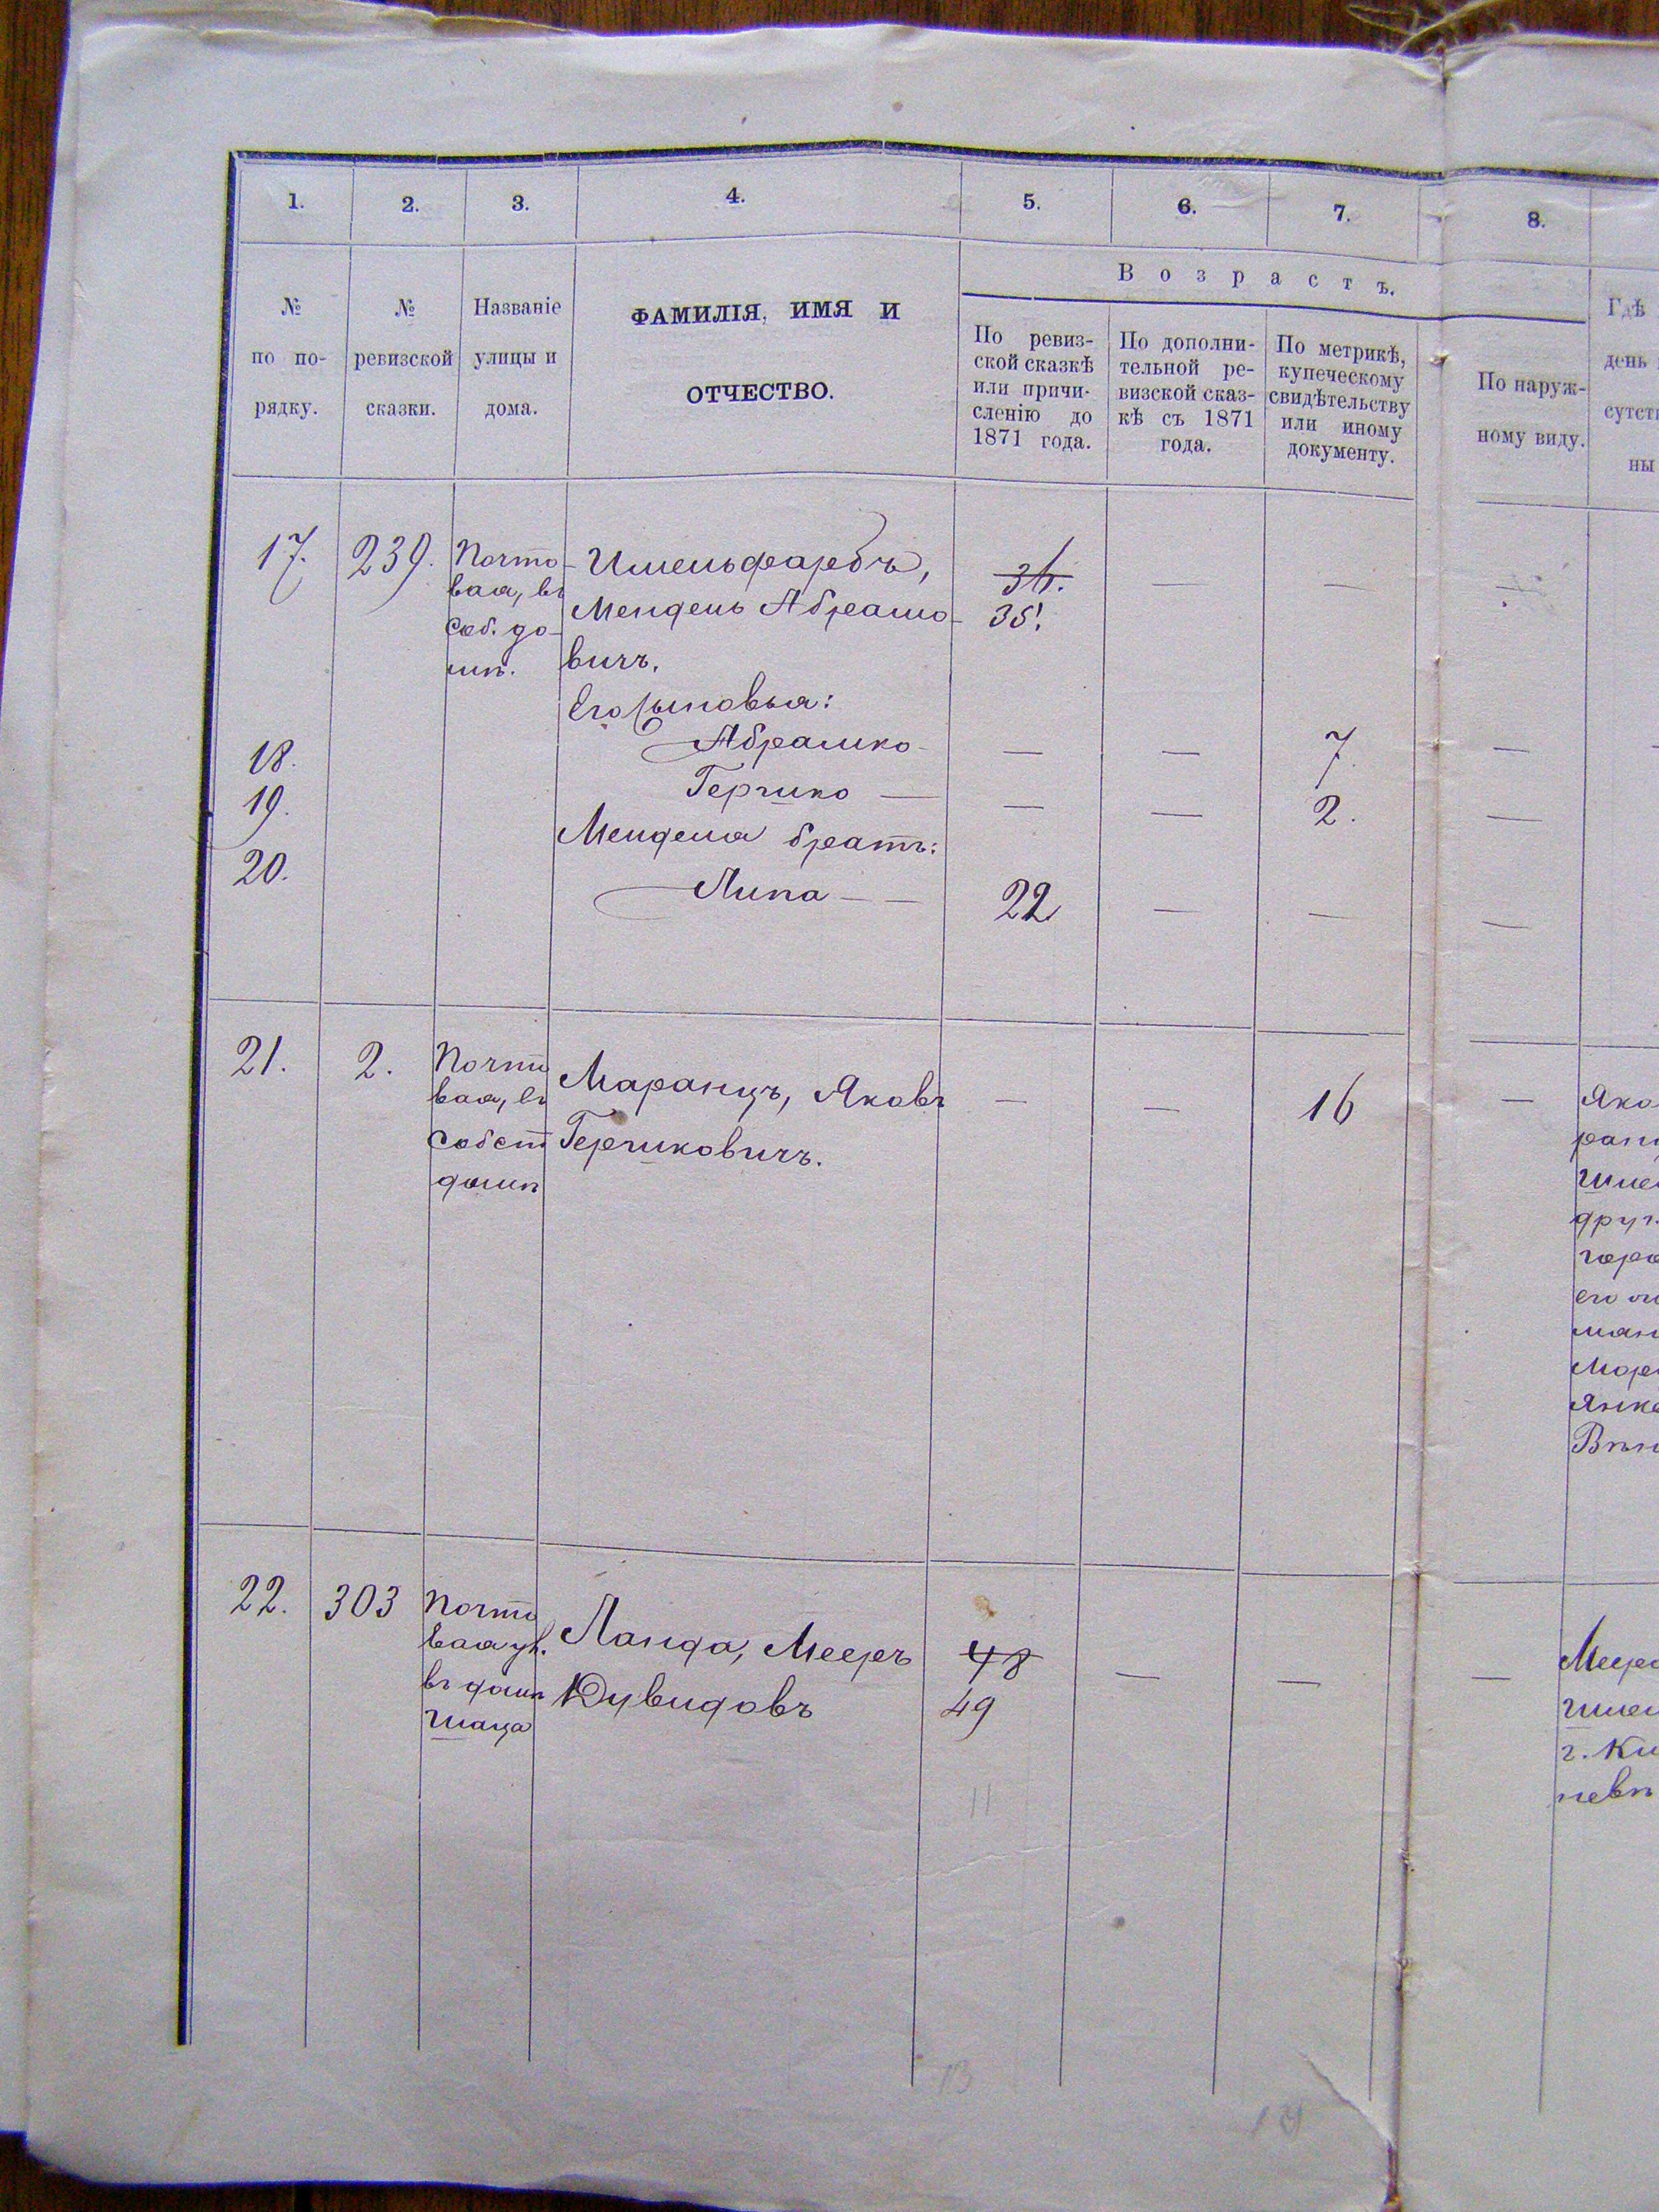 1. 2. 3. 4. 5. 6. 7. 8.
В о з р а с т ъ.
№
по по-
рядку.
№
ревизской
сказки.
Названіе
улицы и
дома.
ФАМИЛІЯ, ИМЯ И
ОТЧЕСТВО.
По ревиз-
ской сказкѣ
или причи-
сленію до
1871 года.
По дополни-
тельной ре-
визской сказ-
кѣ съ 1871
года.
По метрикѣ,
купеческому
свидѣтельству
или иному
документу.
По наруж-
ному виду.
Гдѣ
день
сутст
ны
17. 239.
Почто-
вая, въ
соб. до-
мѣ.
Имельфарбъ,
Мендель Абрамо-
вичъ.
35.
— — —
Его сыновья:
18. Абрамко — — 7. —
19. Гершко — — — 2. —
Менделя братъ:
20. Липа — — 22 — — —
21. 2.
Почто
вая, въ
собст
домѣ
Маранцъ, Яковъ — — 16 —
Гершковичъ.
Яко
ран
Шме
друг.
горо
его
ман
Мор
Янк
22. 303
Почто
вая ул.
въ домѣ
Шаца
Ланда, Мееръ 48 — — —
Дувидовъ 49
Меер
Шме
г. Ки
невѣ
11
13